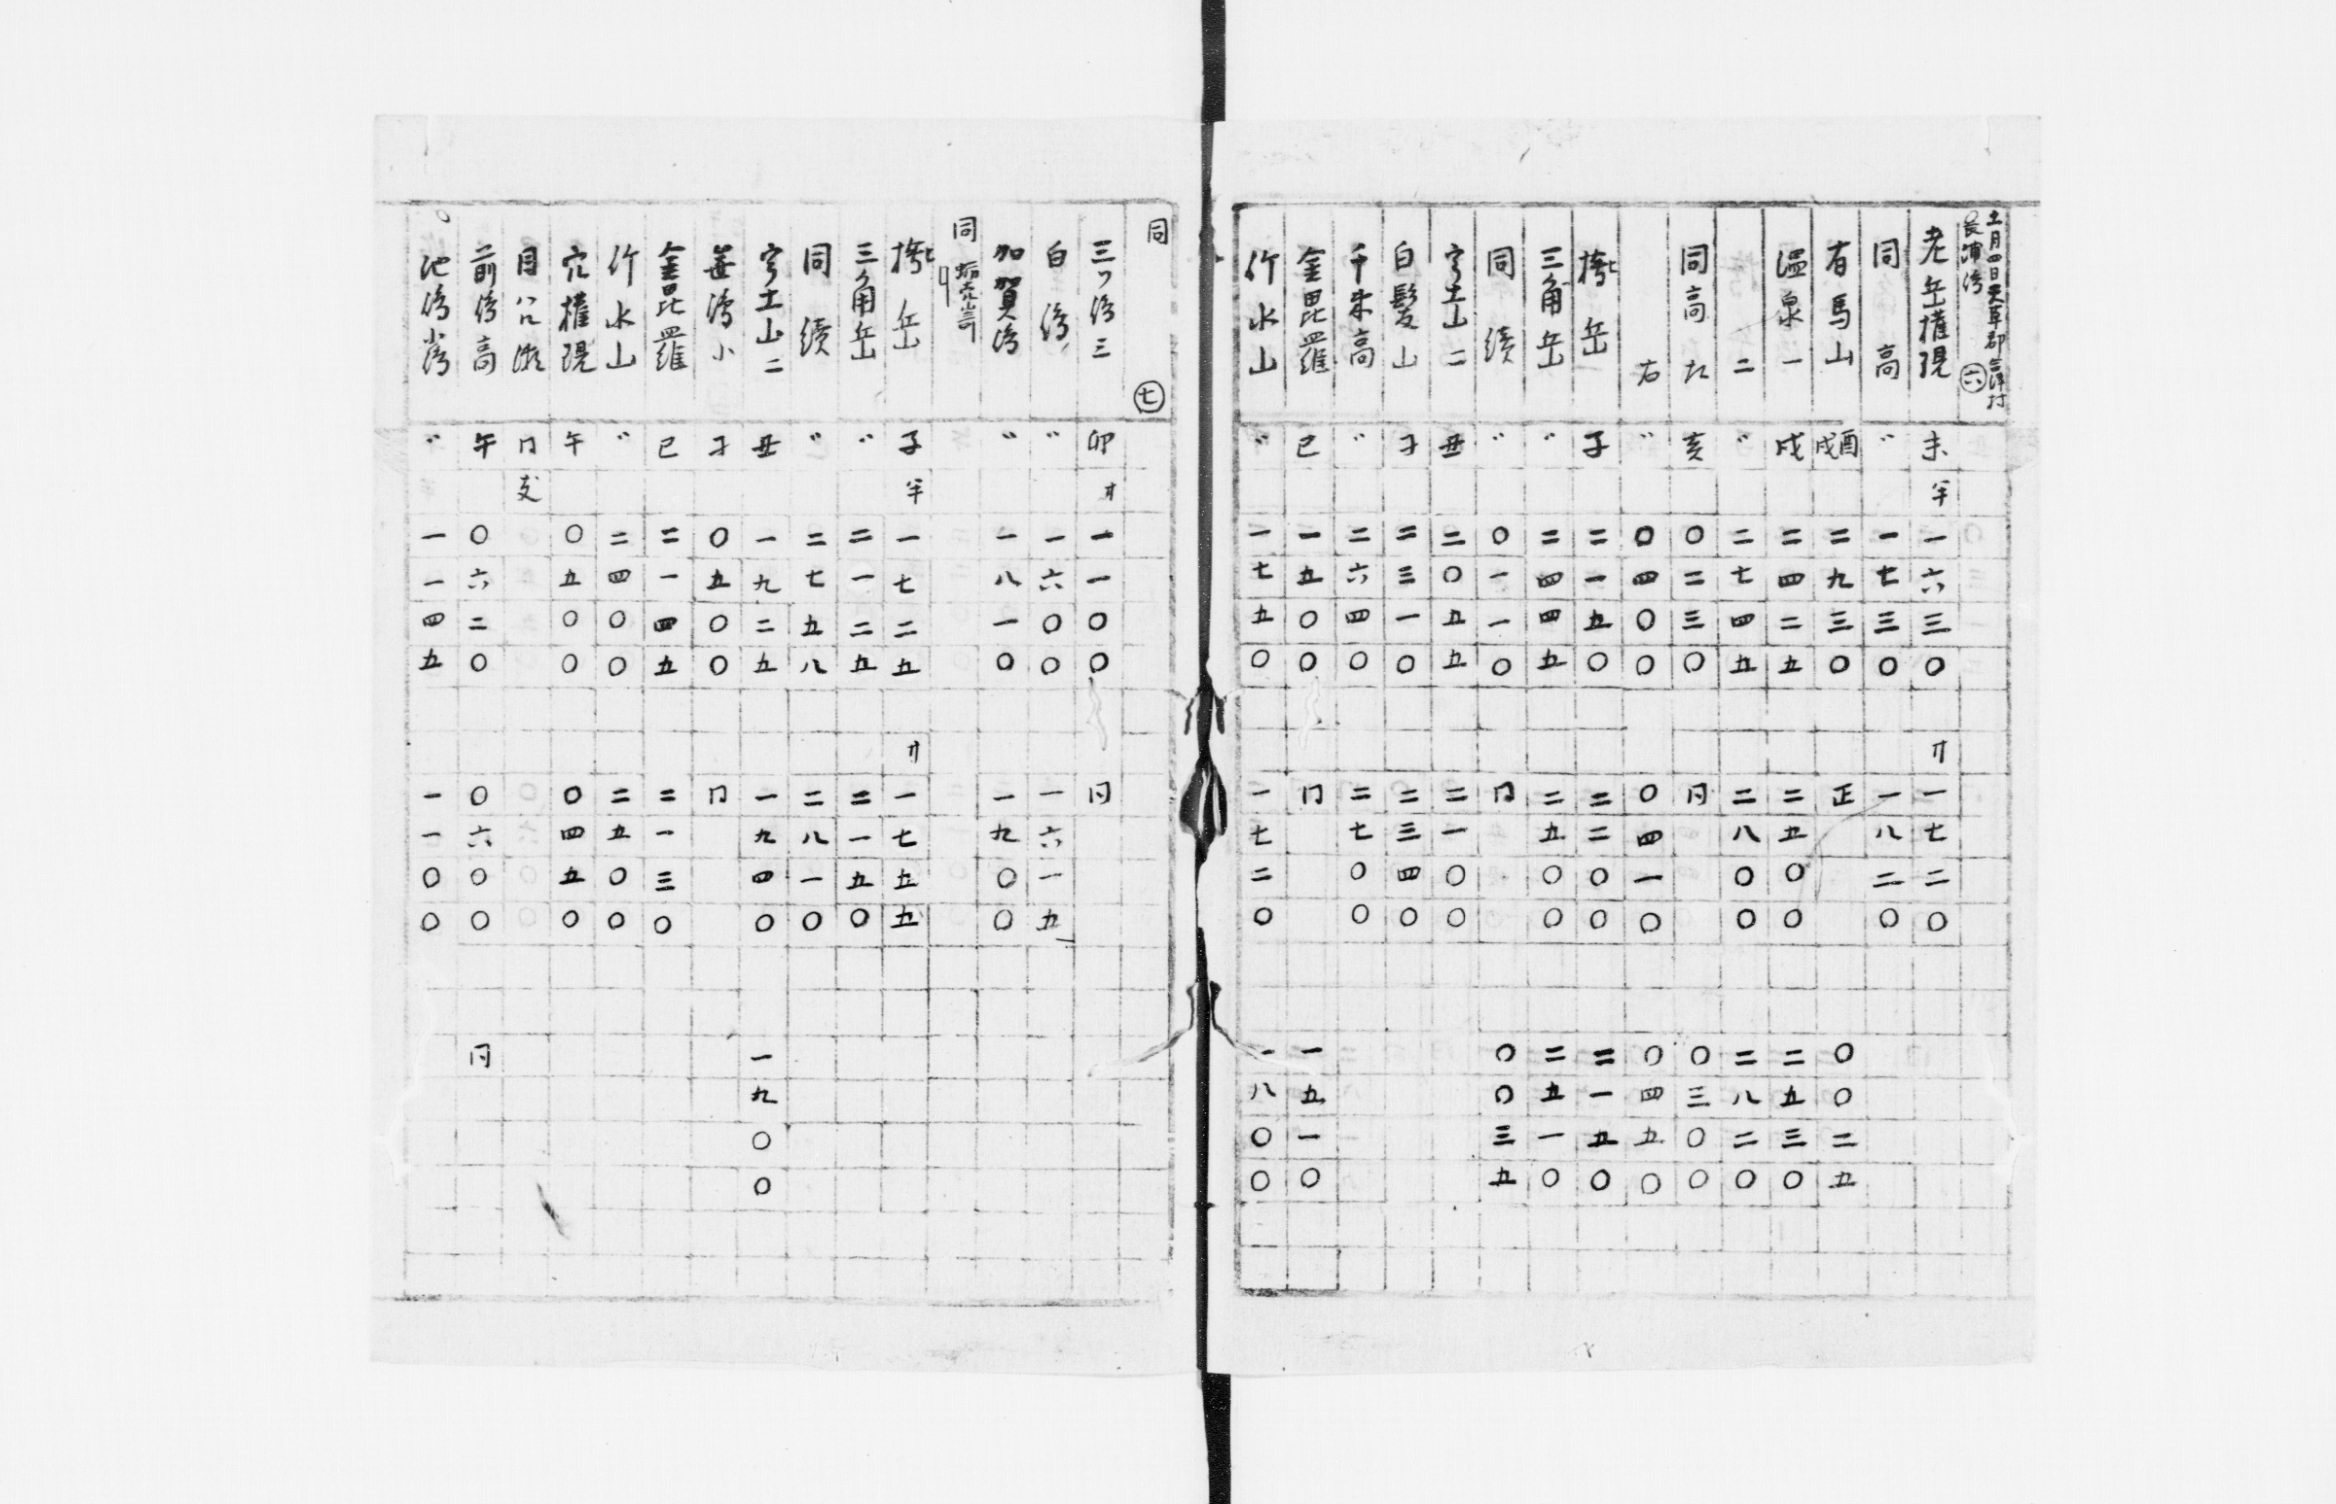 十一月四日天草郡合津村
長浦湾 六
老岳權現 未半 一六三〇 サ一七二〇
同高 〃 一七三〇 一八二〇
有馬山 酉戌 二九三〇 正 〇〇二五
温泉一 戌 二四二五 二五〇〇 二五三〇
二 〃 二七四五 二八〇〇 二八二〇
同高左 亥 〇二三〇 同 〇三〇〇
右 〃 〇四〇〇 〇四一〇 〇四五〇
岳 子 二一五〇 二二〇〇 二一五〇
三角岳 〃 二四四五 二五〇〇 二五一〇
同續 〃 〇一一〇 同 〇〇三五
宇土山二 丑 二〇五五 二一〇〇
白髪山 子 二三一〇 二三四〇
千束高 〃 二六四〇 二七〇〇
金毘羅 巳 一五〇〇 同 一五一〇
竹水山 〃 一七五〇 一七二〇 一八〇〇
同 七
三ツ湾三 卯サ 一一〇〇 同
白湾 〃 一六〇〇 一六一五
加賀湾 〃 一八一〇 一九〇〇
同
岳 子半 一七二五 サ一七五五
三角岳 〃 二一二五 二一五〇
同續 〃 二七五八 二八一〇
宇土山二 丑 一九二五 一九四〇 一九〇〇
小 子 〇五〇〇 同
金毘羅 巳 二一四五 二一三〇
竹水山 〃 二四〇〇 二五〇〇
穴權現 午 〇五〇〇 〇四五〇
同支
前湾高 午 〇六二〇 〇六〇〇 同
池湾小湾 〃 一一四五 一一〇〇